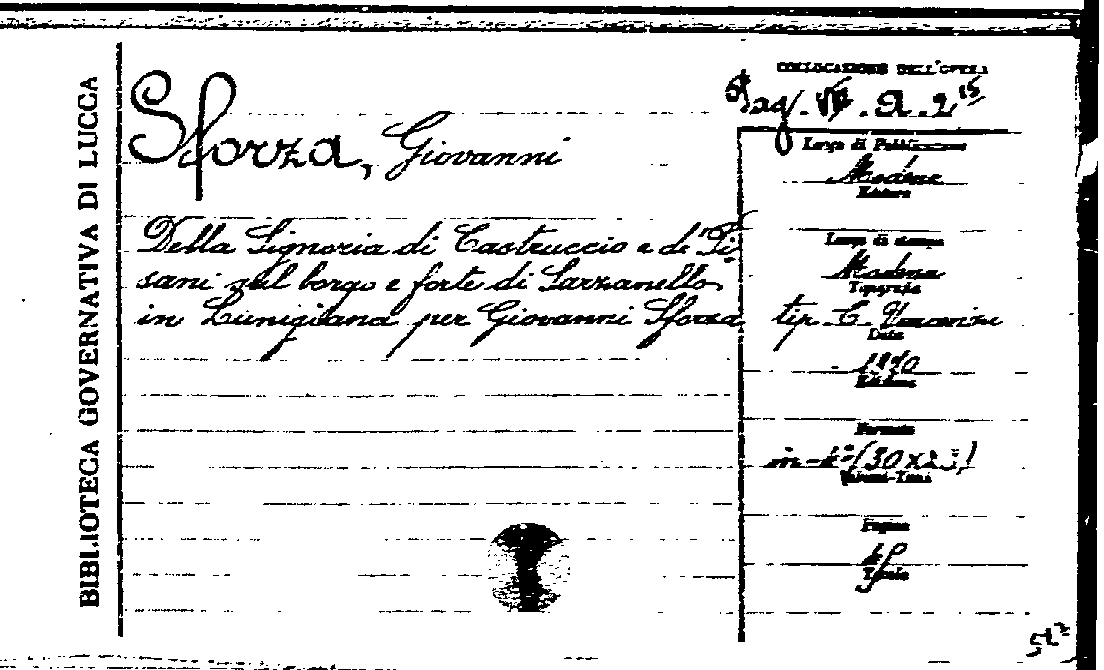 BIBLIOTECA GOVERNATIVA DI LUCCA
Sforza, Giovanni
Della Signoria di Castruccio e de' Pi
sani sul borgo e forte di Sarzanello
in Lunigiana per Giovanni Sforza
COLLOCAZIONE DELL'OPERA
Luogo di Pubblicazione
Modena
Editore
Luogo di stampa
Modena
Tipografia
tip. C. Vincenzi
Data
1870
Edizione
Formato
in-4º (30x23)
Volumi-Tomi
Pagine
Tavole